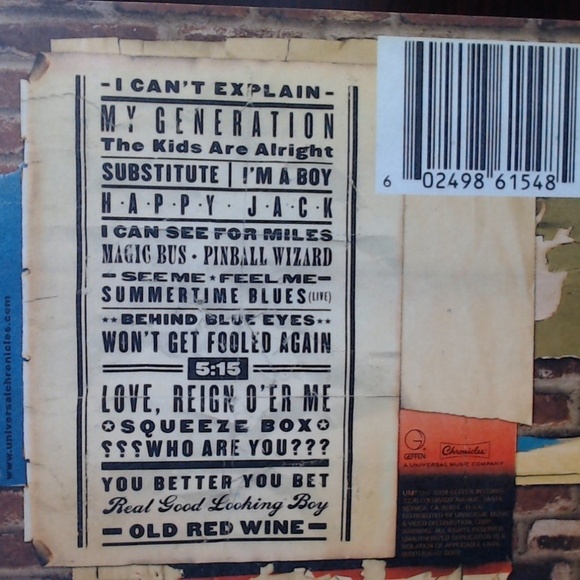 -I CAN'T EXPLAIN-
MY GENERATION
The Kids Are Alright
SUBSTITUTE | I'M A BOY
H·A·P·P·Y· J·A·C·K
I CAN SEE FOR MILES
MAGIC BUS • PINBALL WIZARD
SEE ME ★ FEEL ME
SUMMERTIME BLUES (LIVE)
★★BEHIND BLUE EYES★★
WON'T GET FOOLED AGAIN
5:15
LOVE, REIGN O'ER ME
✪SQUEEZE BOX✪
???WHO ARE YOU???
YOU BETTER YOU BET
Real Good Looking Boy
OLD RED WINE
6 02498 61548
www.universalchronicles.com
GEFFEN
Chronicles
A UNIVERSAL MUSIC COMPANY